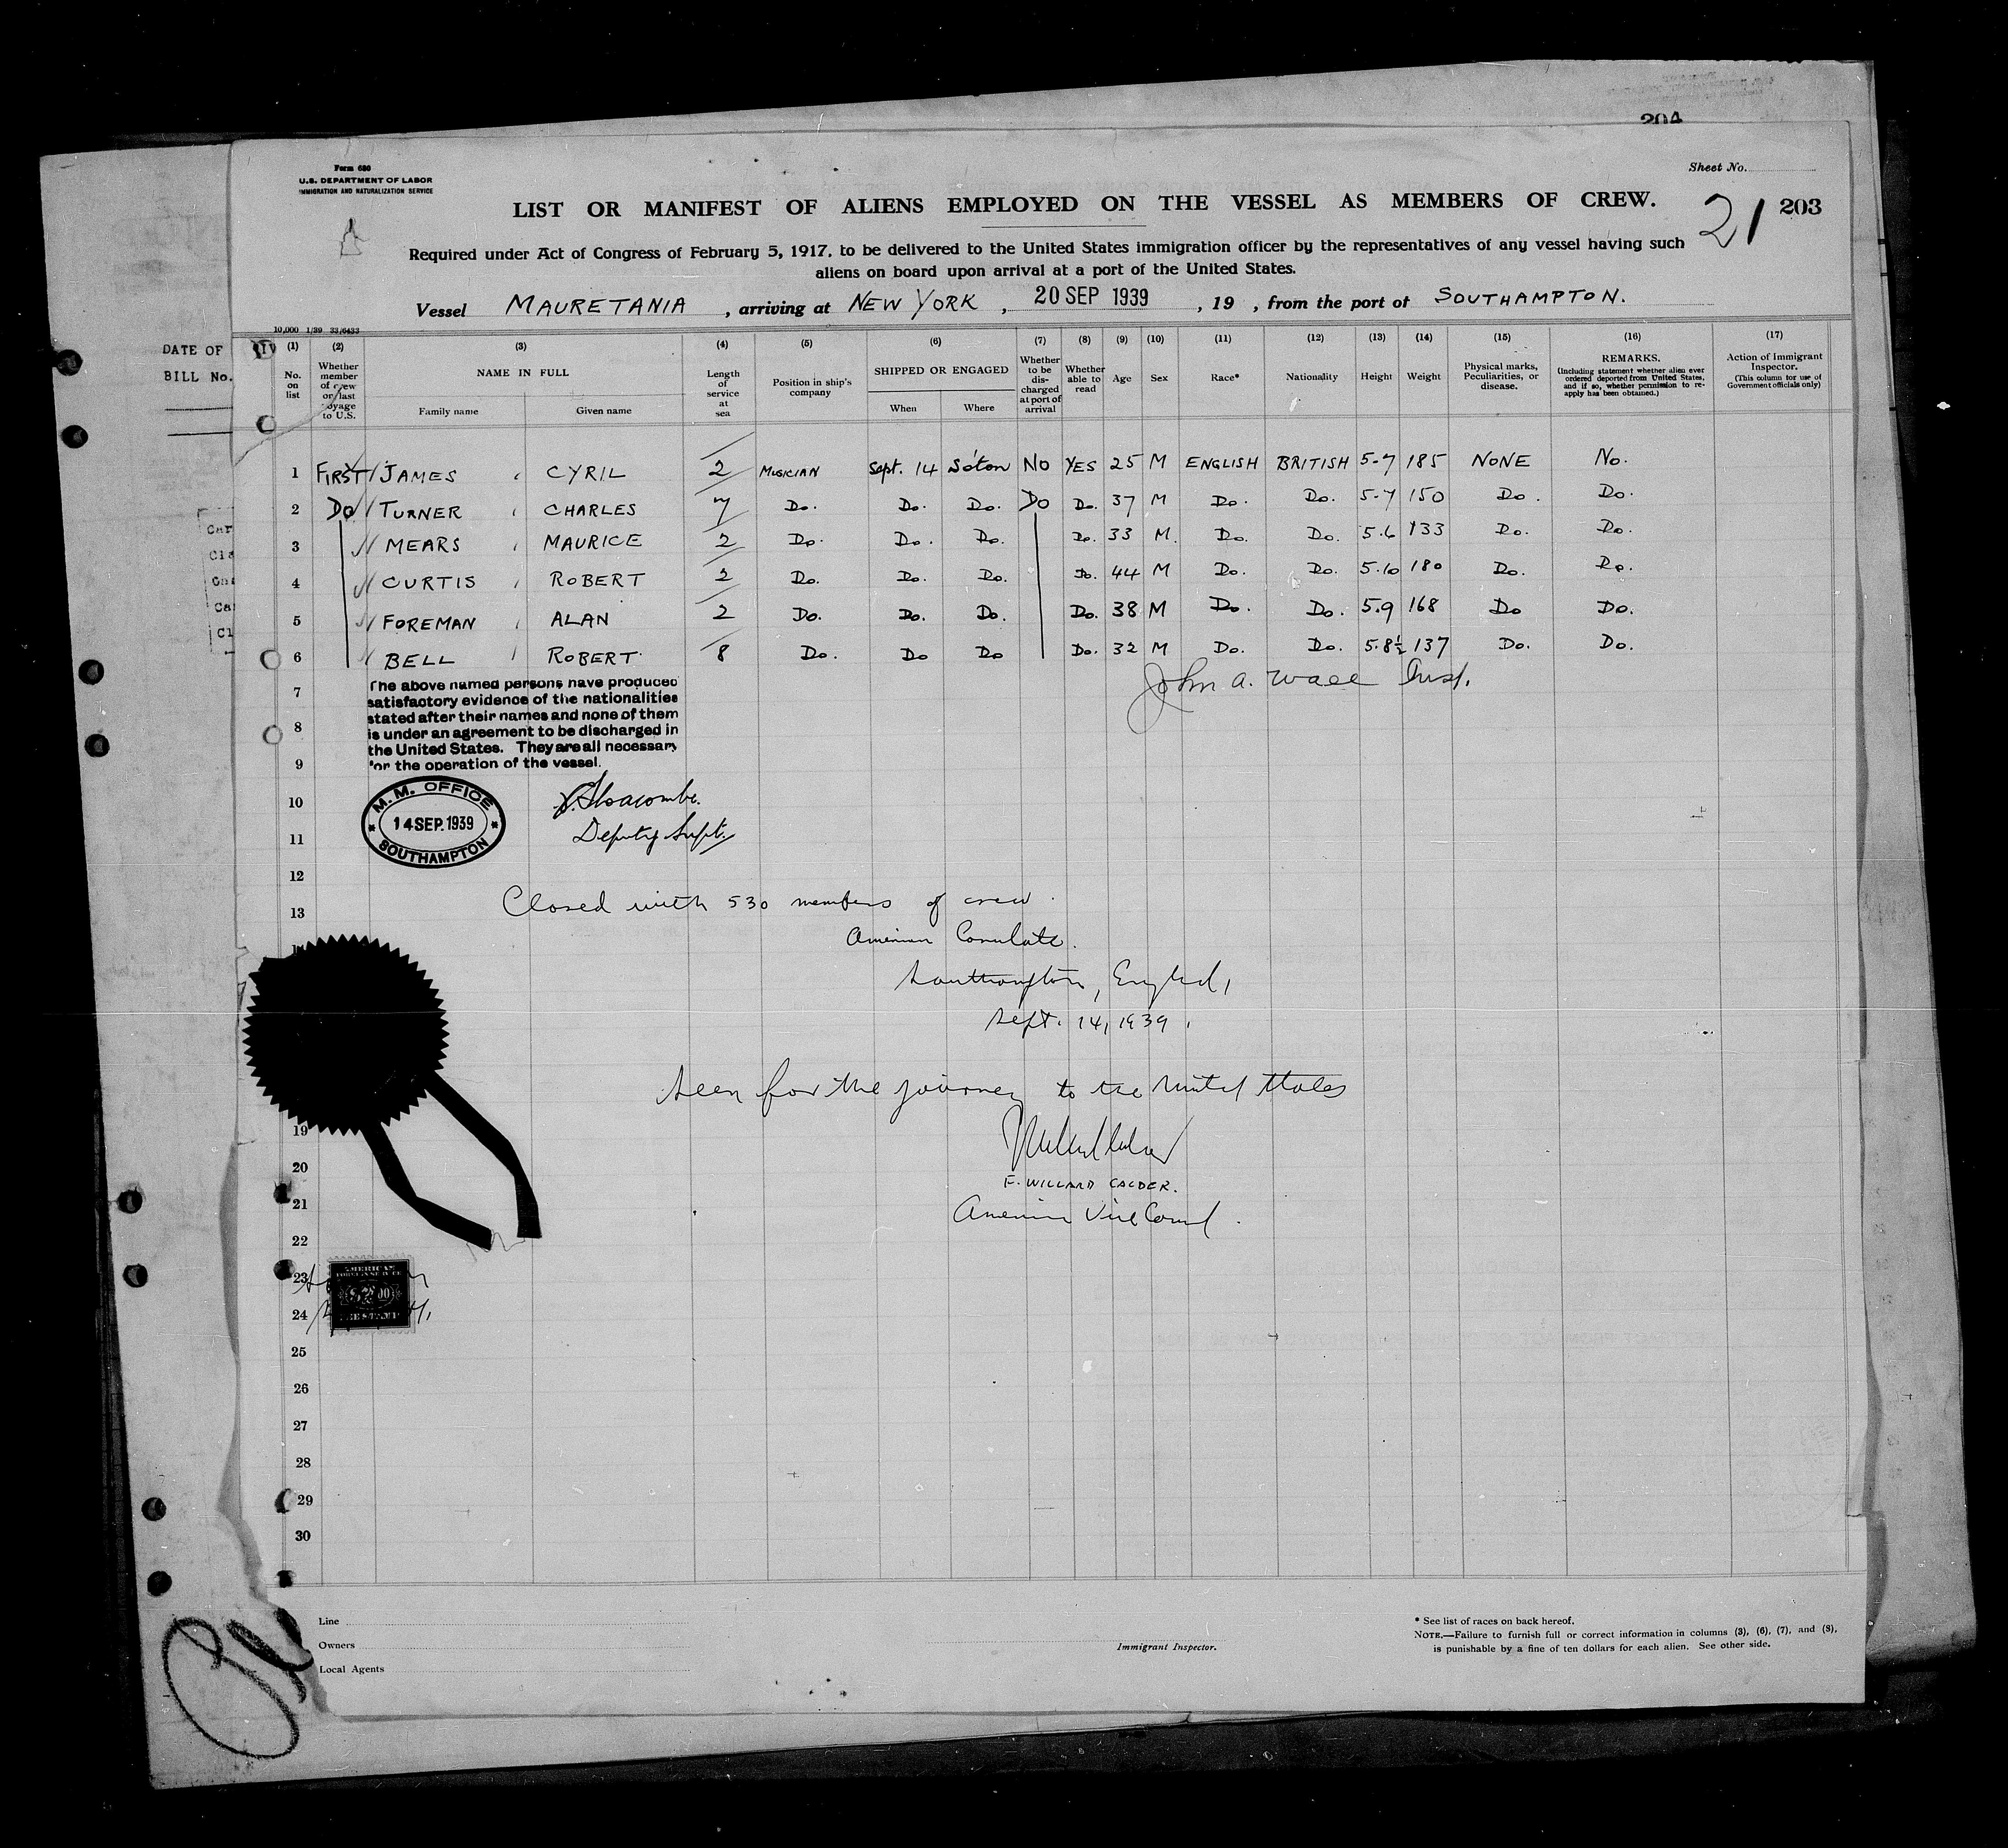 204
Form 680
U.S. DEPARTMENT OF LABOR
IMMIGRATION AND NATURALIZATION SERVICE
Sheet No.
LIST OR MANIFEST OF ALIENS EMPLOYED ON THE VESSEL AS MEMBERS OF CREW.
21 203
Required under Act of Congress of February 5, 1917, to be delivered to the United States immigration officer by the representatives of any vessel having such
aliens on board upon arrival at a port of the United States.
Vessel MAURETANIA, arriving at NEW YORK, 20 SEP 1939, 19 , from the port of SOUTHAMPTON.
10,000 1/39 33/6433
DATE OF
BILL No.
(1) (2) (3) (4) (5) (6) (7) (8) (9) (10) (11) (12) (13) (14) (15) (16) (17)
No. on list
Whether member of crew on last voyage to U.S.
NAME IN FULL
Family name
Given name
Length of service at sea
Position in ship's company
SHIPPED OR ENGAGED
When
Where
Whether to be discharged at port of arrival
Whether able to read
Age
Sex
Race*
Nationality
Height
Weight
Physical marks, Peculiarities, or disease.
REMARKS.
(Including statement whether alien ever ordered deported from United States, and if so, whether permission to re-apply has been obtained.)
Action of Immigrant Inspector.
(This column for use of Government officials only)
1 FIRST JAMES CYRIL 2 MUSICIAN Sept. 14 So'ton NO YES 25 M ENGLISH BRITISH 5-7 185 NONE No.
2 Do TURNER CHARLES 7 Do. Do. Do. Do Do. 37 M Do. Do. 5-7 150 Do. Do.
3 MEARS MAURICE 2 Do. Do. Do. Do. 33 M. Do. Do. 5.6 133 Do. Do.
4 CURTIS ROBERT 2 Do. Do. Do. Do. 44 M Do. Do. 5.10 180 Do. Do.
5 FOREMAN ALAN 2 Do. Do. Do. Do. 38 M Do. Do. 5.9 168 Do Do.
6 BELL ROBERT 8 Do. Do Do Do. 32 M Do. Do. 5.8½ 137 Do. Do.
John A. Wall Insp.
7
8
9
The above named persons have produced
satisfactory evidence of the nationalities
stated after their names and none of them
is under an agreement to be discharged in
the United States. They are all necessary
for the operation of the vessel.
10
11
M.M. OFFICE
14 SEP. 1939
SOUTHAMPTON
Deputy Supt.
12
13
Closed with 530 members of crew.
American Consulate.
Southampton, England,
Sept. 14, 1939.
Seen for the journey to the United States
F. WILLARD CALDER.
American Vice Consul.
19
20
21
22
23
24
AMERICAN
FOREIGN SERVICE
FEE STAMP
25
26
27
28
29
30
Line
Owners
Local Agents
Immigrant Inspector.
* See list of races on back hereof.
NOTE.—Failure to furnish full or correct information in columns (3), (6), (7), and (8),
is punishable by a fine of ten dollars for each alien. See other side.